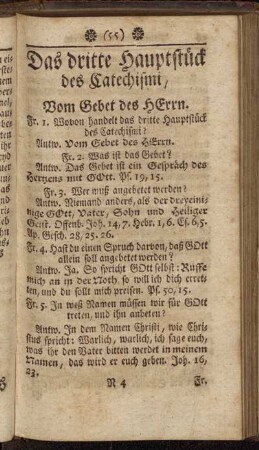 ❁ (55) ❁
Das dritte Hauptstück
des Catechismi,
Vom Gebet des HErrn.
Fr. 1. Wovon handelt das dritte Hauptstück
des Catechismi?
Antw. Vom Gebet des HErrn.
Fr. 2. Was ist das Gebet?
Antw. Das Gebet ist ein Gespräch des
Hertzens mit GOtt. Ps. 19, 15.
Fr. 3. Wer muß angebetet werden?
Antw. Niemand anders, als der dreyeini-
nige GOtt, Vater, Sohn und Heiliger
Geist. Offenb. Joh. 14, 7. Hebr. 1, 6. Es. 6, 5.
Ap. Gesch. 28, 25. 26.
Fr. 4. Hast du einen Spruch darvon, daß GOtt
allein soll angebetet werden?
Antw. Ja. So spricht GOtt selbst: Ruffe
mich an in der Noth, so will ich dich erret-
ten, und du sollt mich preisen. Ps. 50, 15.
Fr. 5. In weß Namen müssen wir für GOtt
treten, und ihn anbeten?
Antw. In dem Namen Christi, wie Chri-
stus spricht: Warlich, warlich, ich sage euch,
was ihr den Vater bitten werdet in meinem
Namen, das wird er euch geben. Joh. 16,
23.
N 4 Fr.